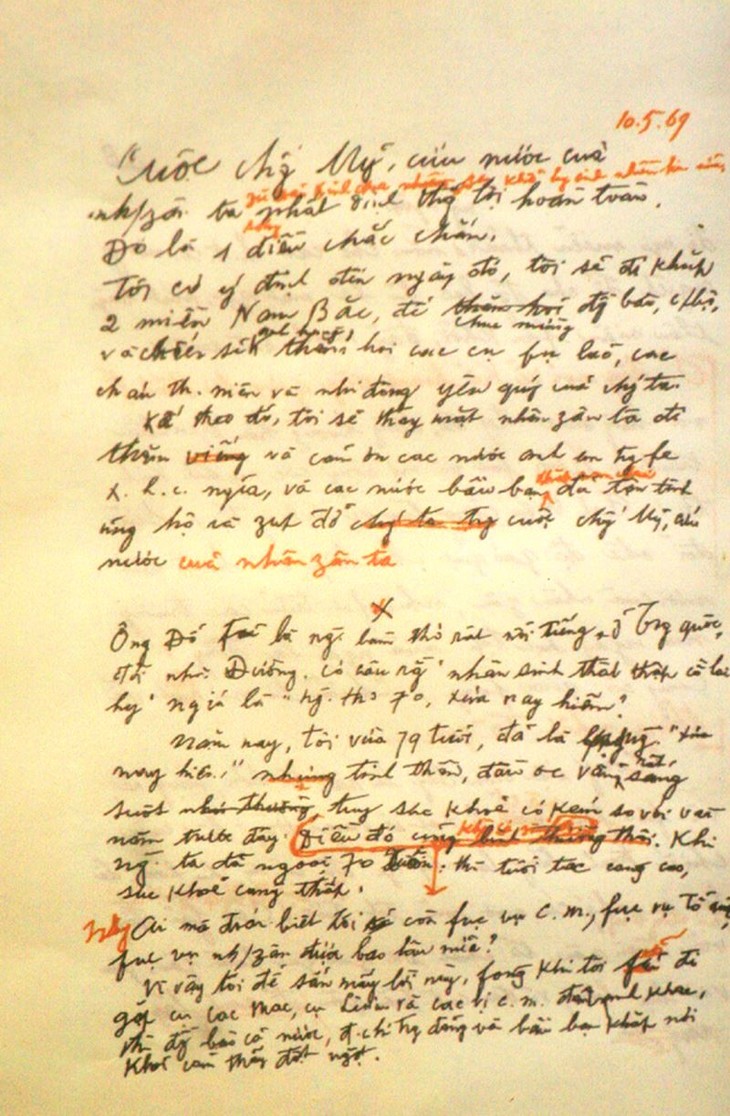 10.5.69
Cuộc chg' Mỹ, cứu nước của
nh/zân ta
phải hy sinh nhiều hơn nữa,
nhất định thg' lợi hoàn toàn.
Đó là 1 điều chắc chắn.
Tôi có ý định đến ngày đó, tôi sẽ đi khắp
2 miền Nam Bắc, để thăm hỏi đg bào,
chúc mừng
anh hùng
và chiến sĩ thăm hỏi các cụ fụ lão, các
cháu th. niên và nhi đồng yêu quý của chg' ta.
Kế theo đó, tôi sẽ thay mặt nhân zân ta đi
thăm viếng và cảm ơn các nước anh em trg fe
x. h. c. ngĩa, và các nước bầu bạn đã tận tình
ủng hộ và zúp đỡ chg' ta trg cuộc chg' Mỹ, cứu
nước của nhân zân ta
X
Ông Đỗ Fủ là ng. làm thơ rất nổi tiếng, ở Trg quốc,
đời nhà Đường. Có câu rằg "nhân sinh thất thập cổ lai
hy" ngĩa là "ng. thọ 70, xưa nay hiếm".
Năm nay, tôi vừa 79 tuổi, đã là lớp ng. "xưa
nay hiếm" nhưng tinh thần, đầu óc vẫn sáng
rất
suốt như thường, tuy sức khoẻ có kém so với vài
năm trước đây. Điều đó cũng bình thường thôi. Khi
ng. ta đã ngoài 70 xuân, thì tuổi tác càng cao,
sức khoẻ càng thấp.
Nhưg Ai mà đoán biết tôi sẽ còn fục vụ c.m., fục vụ Tổ quốc,
fục vụ nh/zân được bao lâu nữa?
Vì vậy tôi để sẵn mấy lời này, fòng khi tôi fải đi
gặp cụ Các Mác, cụ Lênin và các vị c.m. đàn anh khác,
thì đg bào cả nước, đ.chí trg đảng và bầu bạn khắp nơi
khỏi cảm thấy đột ngột.